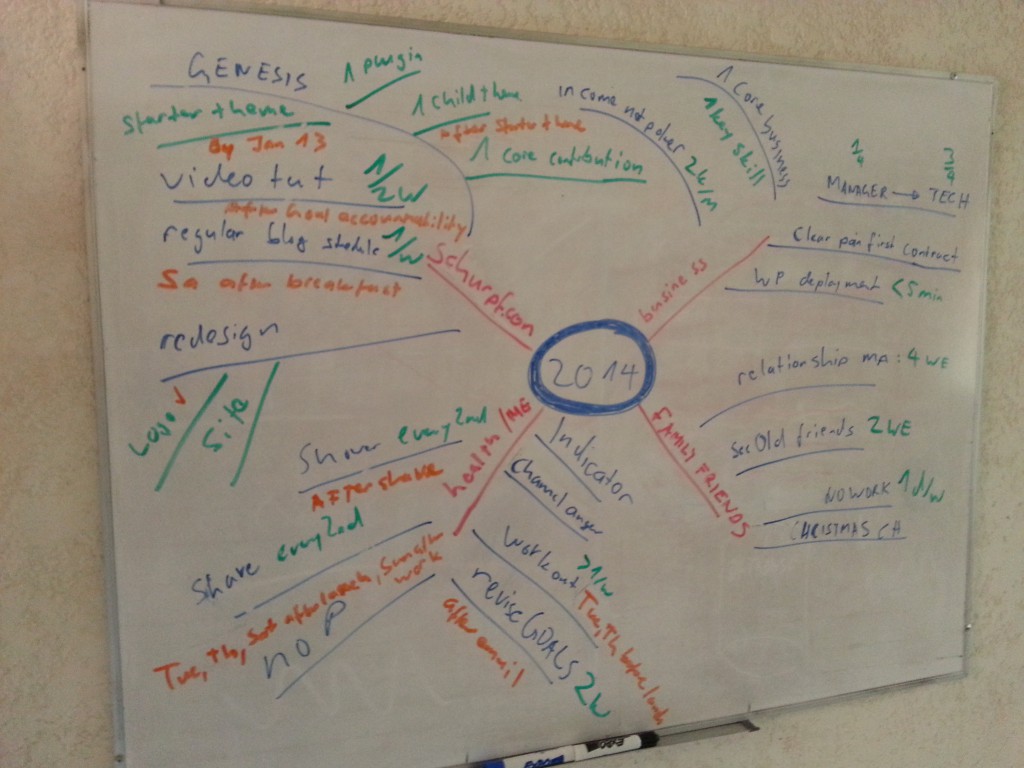 GENESIS
starter theme
By Jan 13
1 plugin
1 child theme
after starter theme
1 core contribution
video tut 1/2W
after Goal accountability
regular blog shedule 1/W
Sa after breakfast
redesign
Logo
Site
Schurpf.com
income not poker 2k/M
1 Core business
1 key skill
business
1/4
3/4
MANAGER → TECH
Clear pain first contract
WP deployment <5 min
2014
relationship mp: 4 WE
see Old friends 2 WE
NO WORK 1d/w
CHRISTMAS CH
FAMILY FRIENDS
health /ME
Shower every 2nd
After shave
Shave every 2nd
Tue, Th, Sat after lunch,
work
no P
Indicator
Channel anger
Workout >1/W
Tue, Th before lunch
revise GOALS 2W
after email